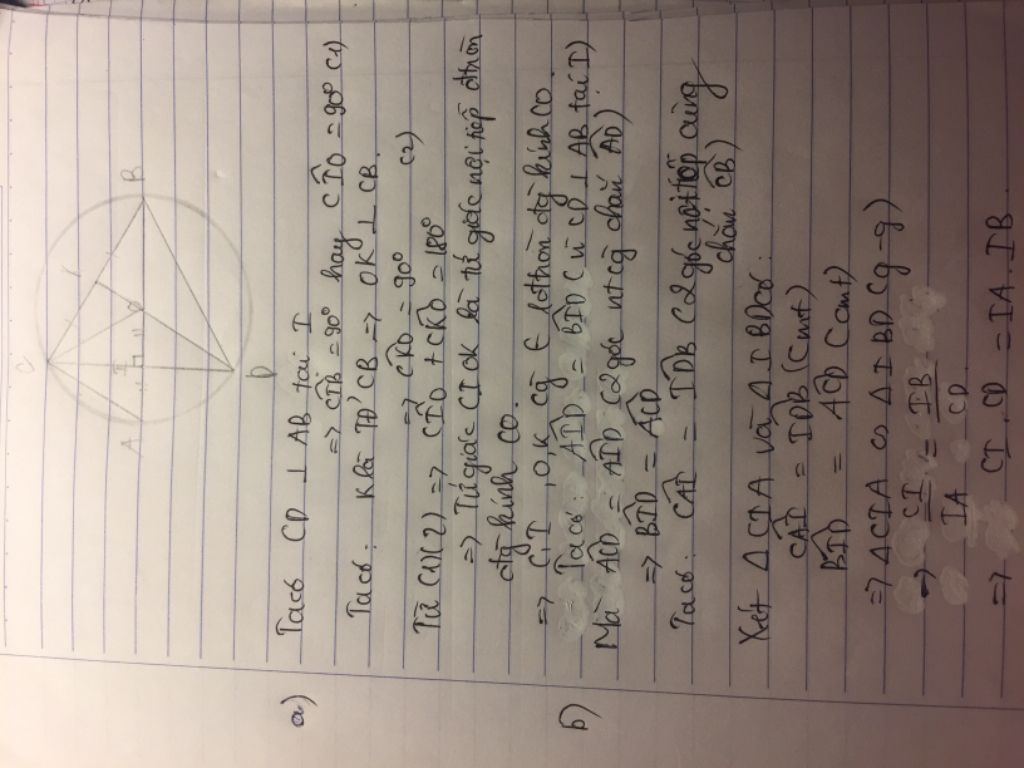 C
A
I
O
B
K
D
a) Ta có CD ⊥ AB tại I
=> CIB = 90° hay CIO = 90° (1)
Ta có: K là TĐ' CB => OK ⊥ CB
=> CKO = 90° (2)
Từ (1)(2) => CIO + CKO = 180°
=> Tứ giác CIOK là tứ giác nội tiếp đtròn
đg kính CO.
=> C, I, O, K cg ∈ 1 đtròn đg kính CO
b) Ta có: AID = BID (Vì CD ⊥ AB tại I)
Mà ACD = AID (2 góc nt cg chắn AD)
=> BID = ACD
Ta có: CAI = IDB (2 góc nội tiếp cùng
chắn CB)
Xét Δ CIA và Δ IBD có:
CAI = IDB (Cmt)
BID = ACD (cmt)
=> Δ CIA ∽ Δ IBD (g-g)
=> CI / IA = IB / CD
=> CI . CD = IA . IB